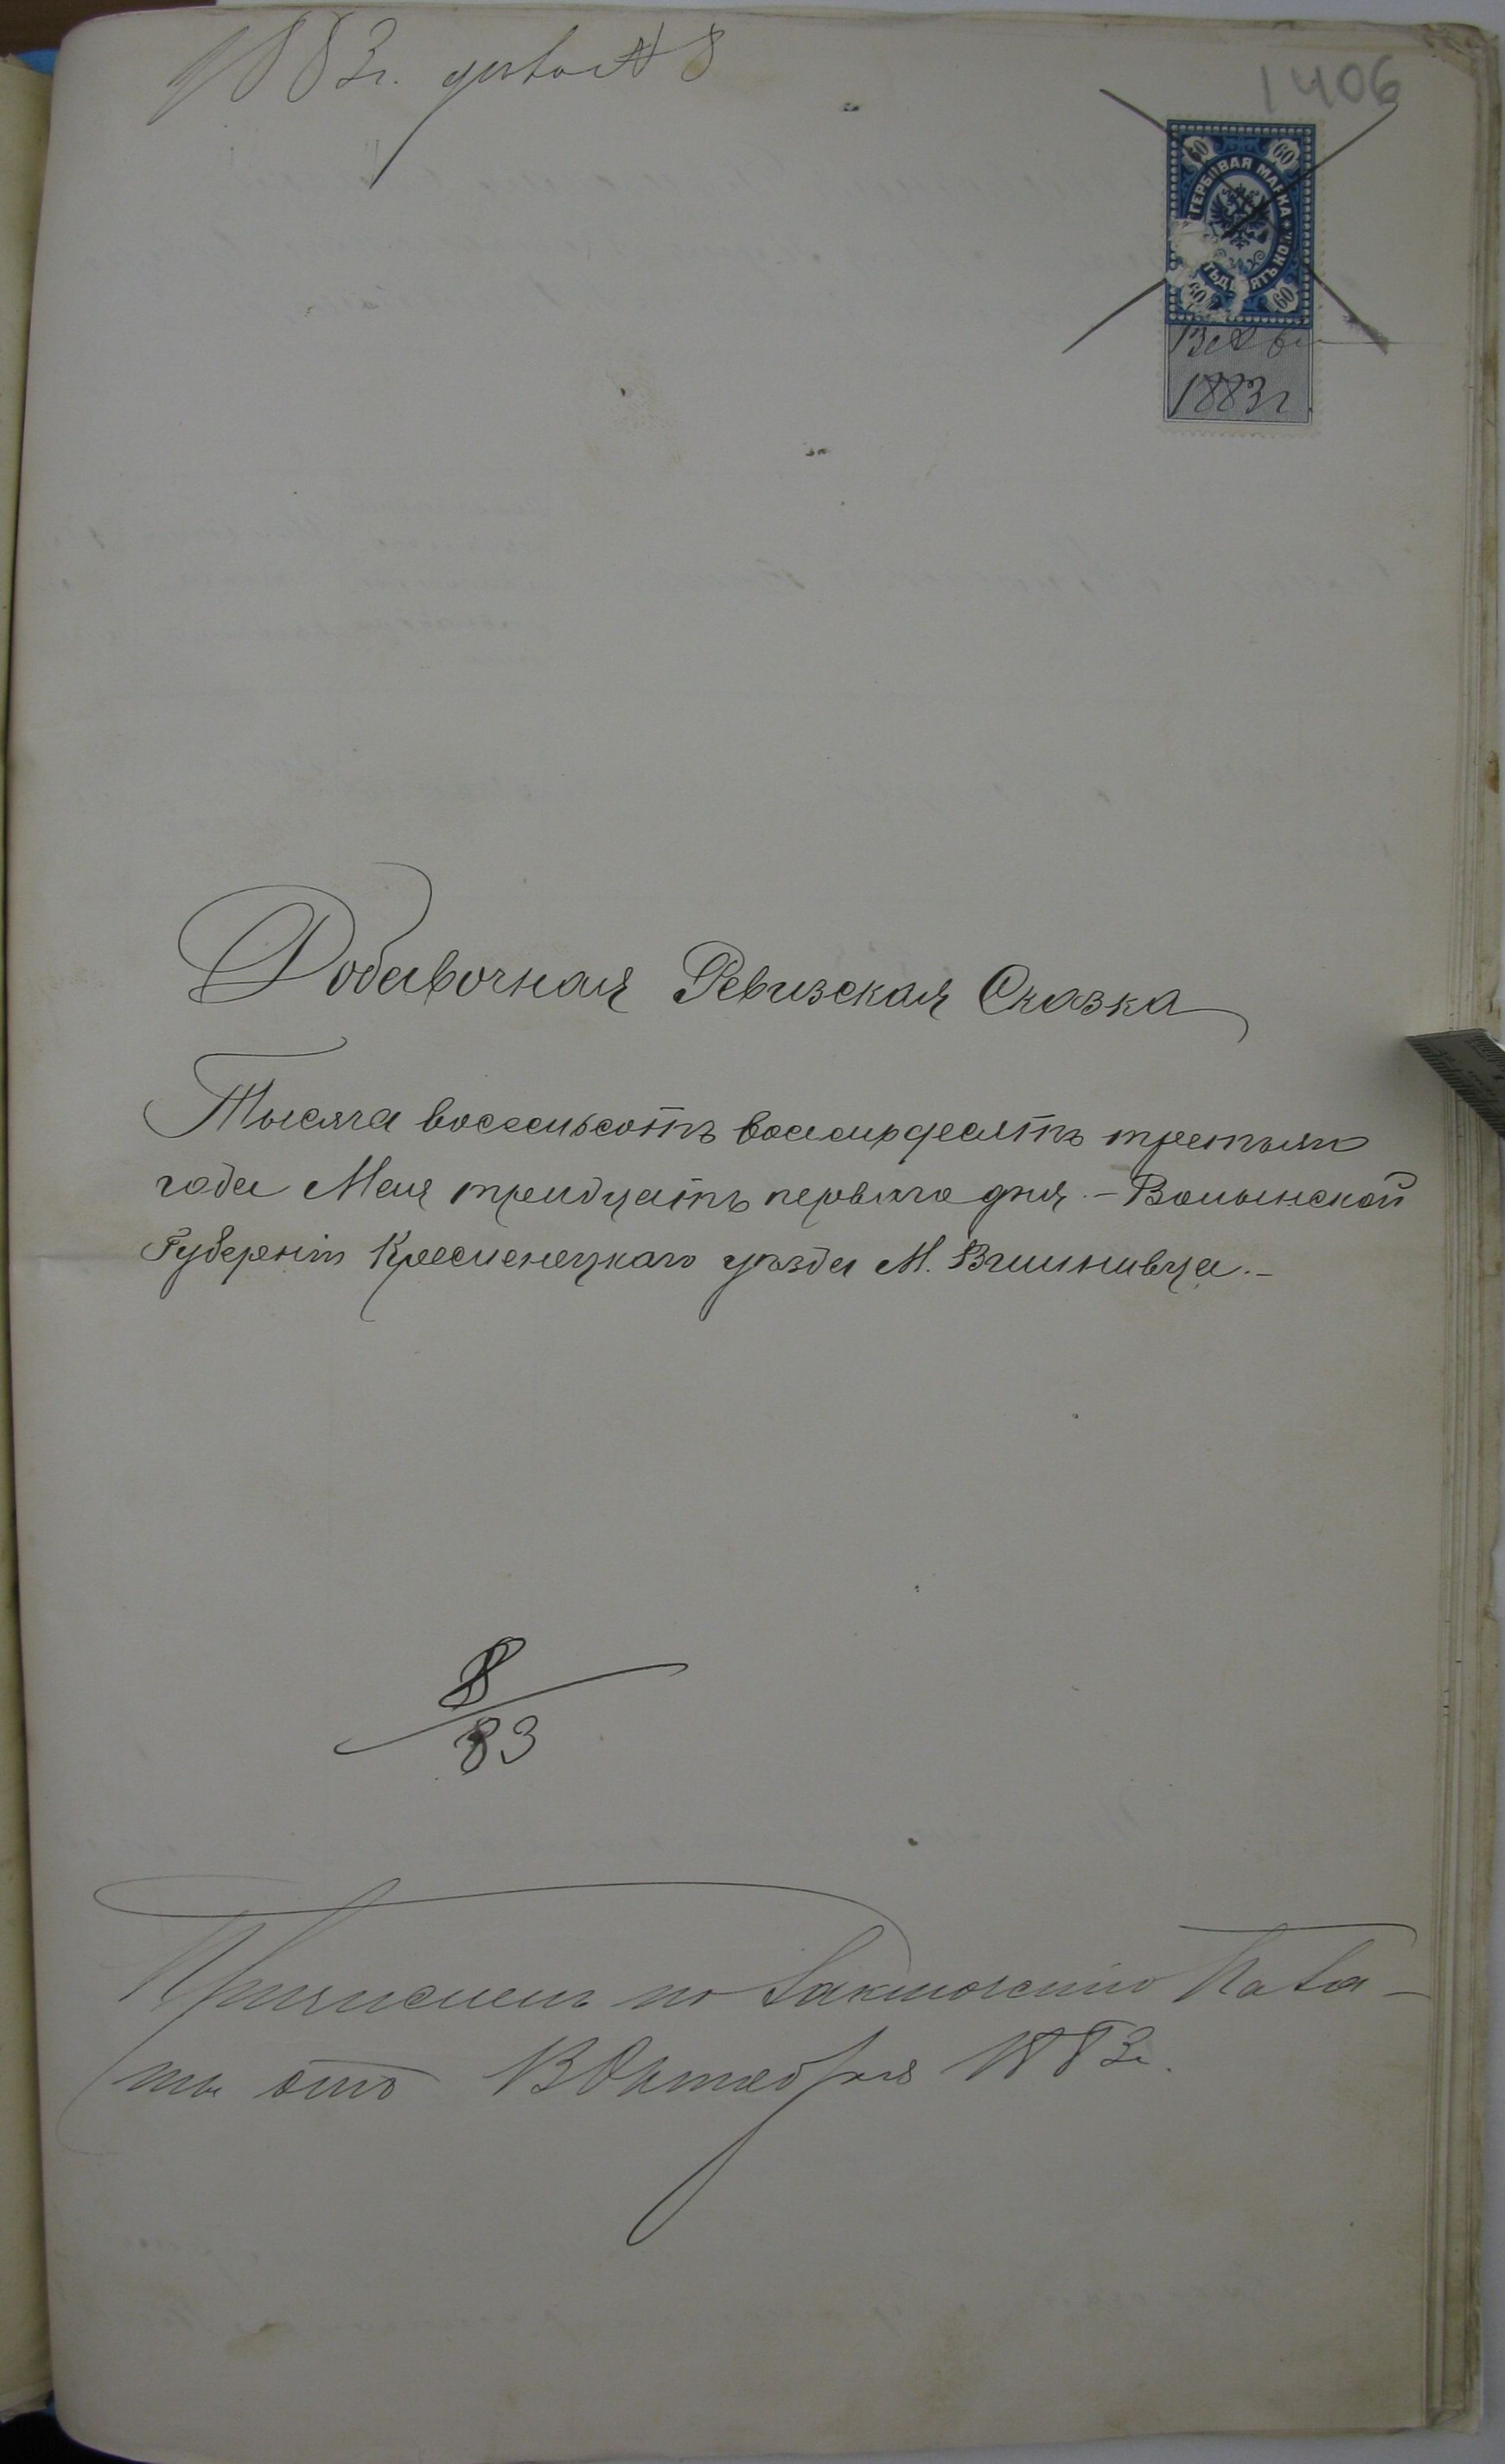 1883г. дѣло № 8
1406
60 60
ГЕРБОВАЯ МАРКА
60 60
1883г.
Добавочная Ревизская Сказка
Тысяча восемьсотъ восемьдесятъ третьяго
года Мая тридцать перваго дня. – Волынской
Губерніи Кременецкаго уѣзда М. Вишнивца. –
8
83
по Пала-
ты отъ 13 Октября 1883г.